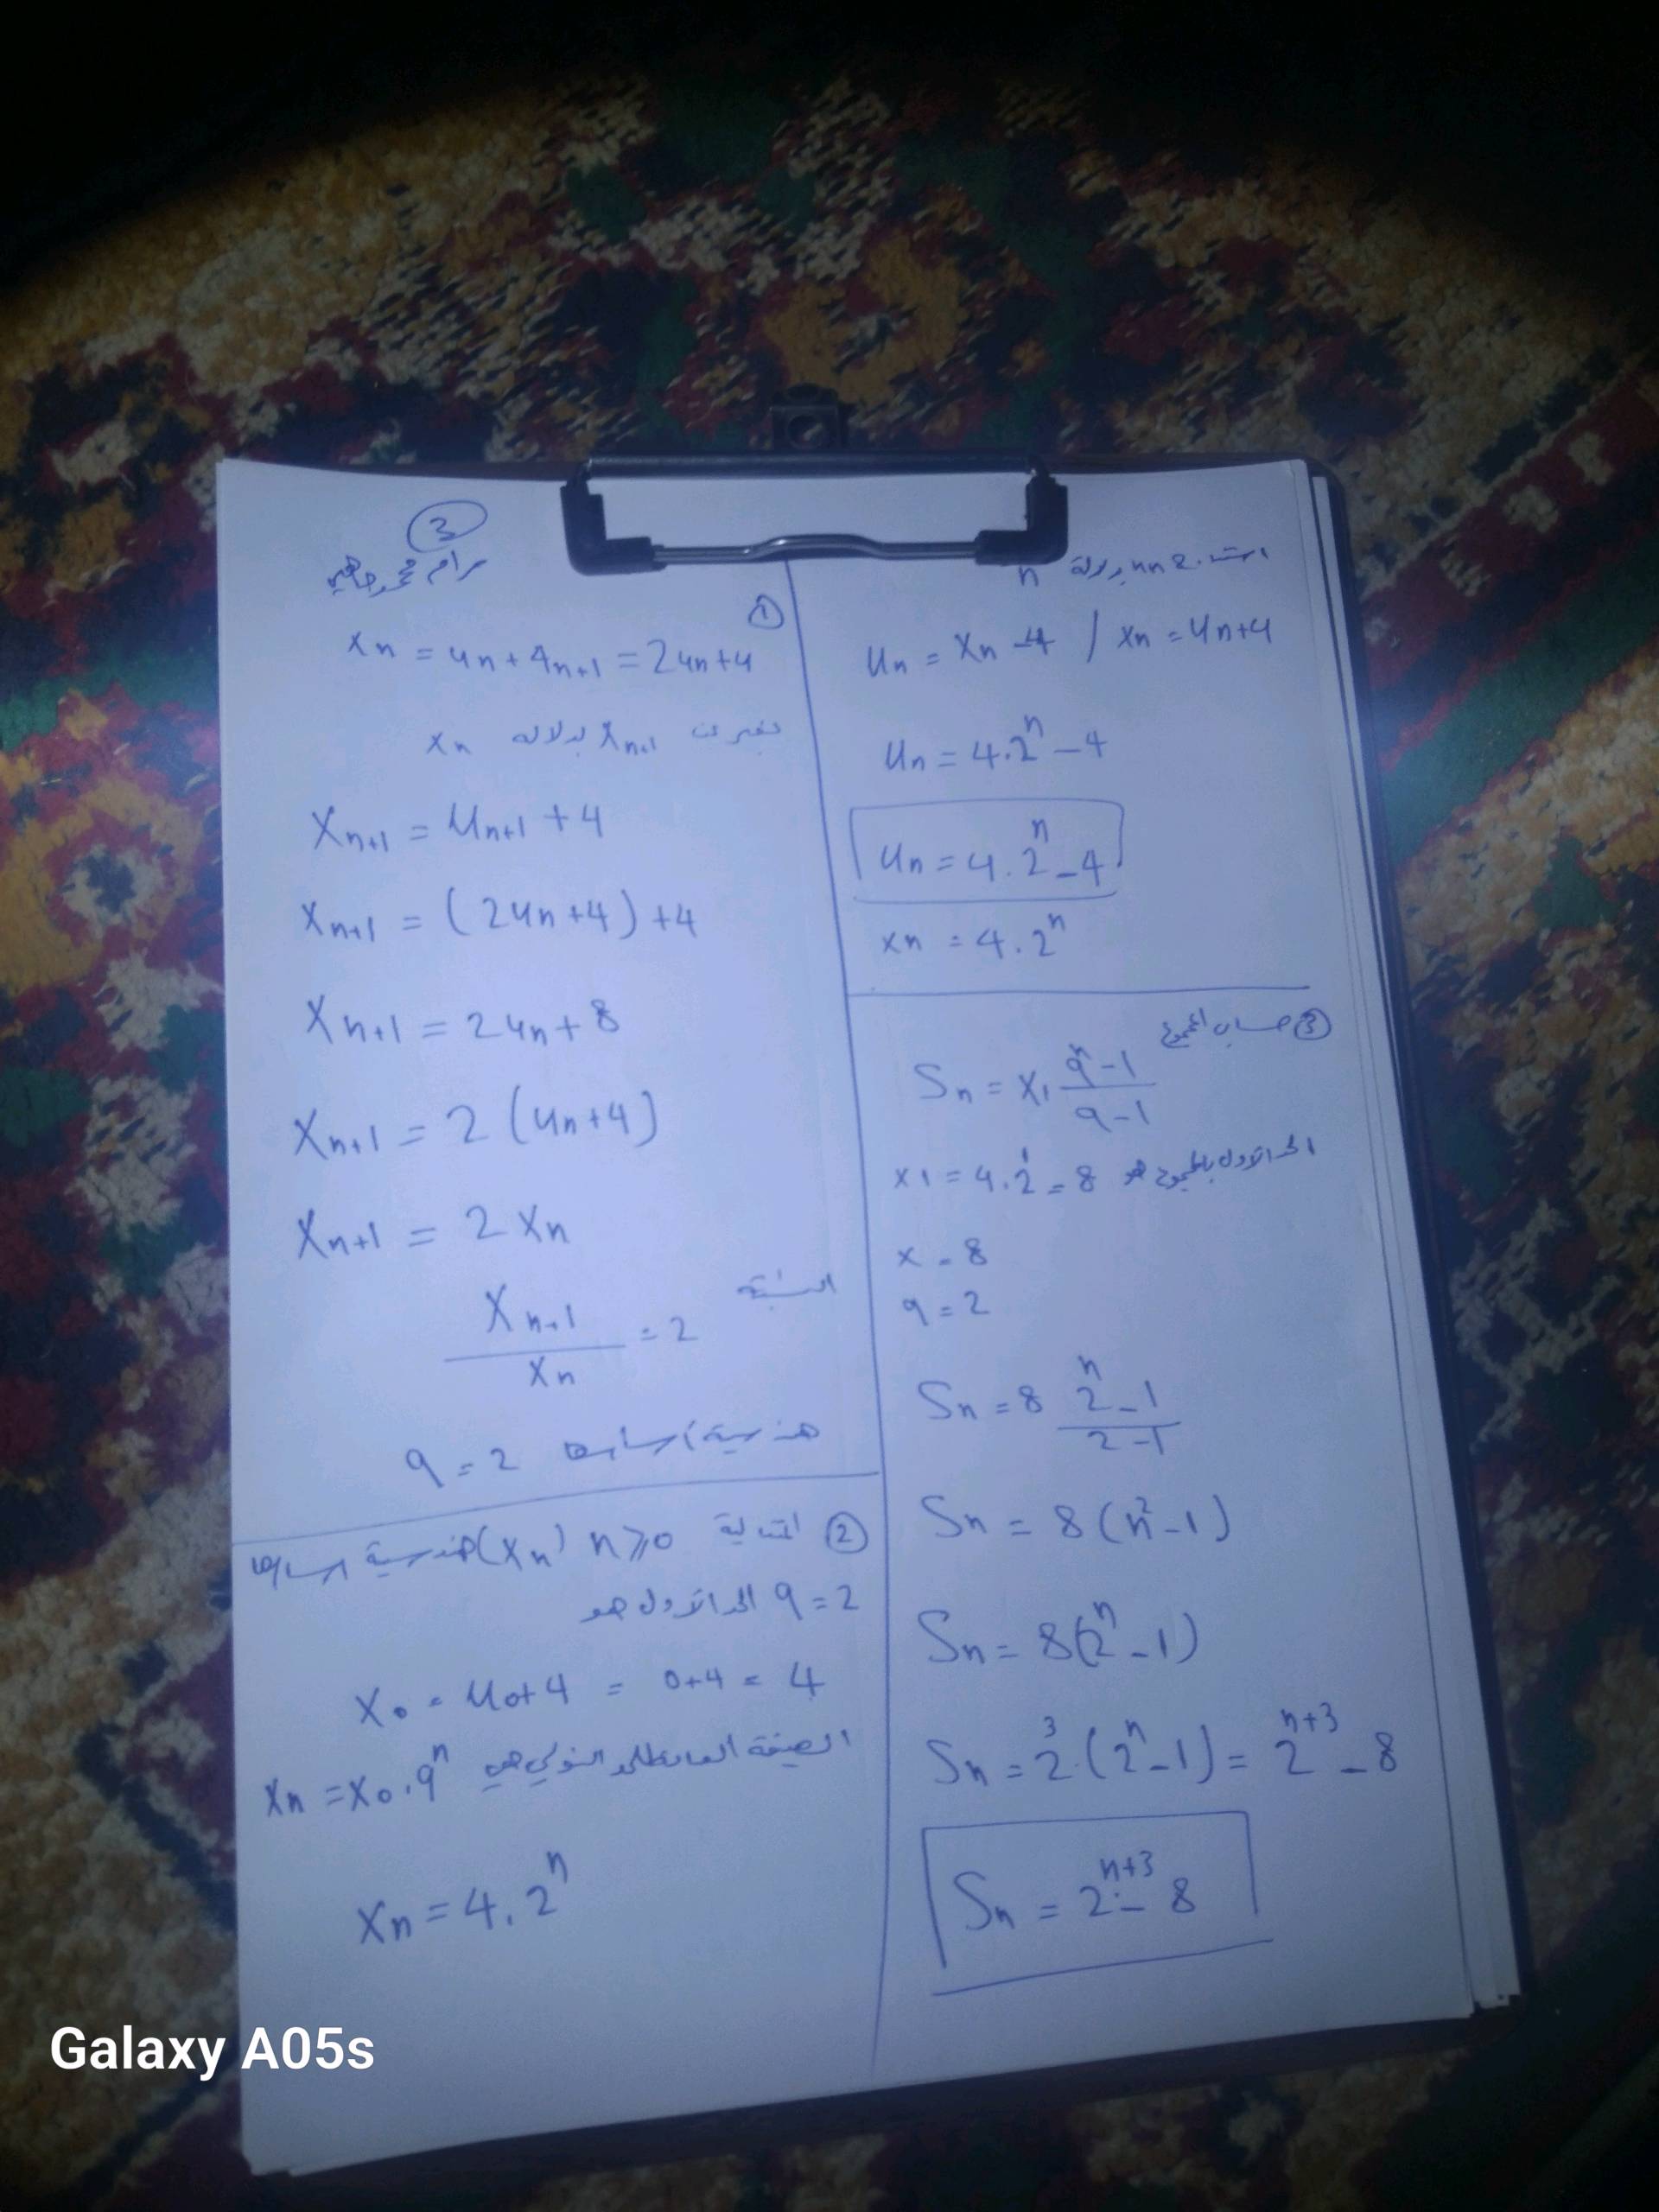 3
مرام محمد جاهين
①
xn = un + 4n+1 = 2un+4
نعبر عن Xn+1 بدلالة xn
Xn+1 = Un+1 + 4
Xn+1 = (2un+4)+4
Xn+1 = 2un+8
Xn+1 = 2(un+4)
Xn+1 = 2Xn
النسبة
Xn+1 / Xn = 2
هندسية أساسها q = 2
② المتتالية (xn) n≥0 هندسية أساسها
q = 2 الحد الأول هو
X0 = U0+4 = 0+4 = 4
هي xn = x0.qⁿ
Xn = 4.2ⁿ
un بدلالة n
Un = Xn - 4 / Xn = Un+4
Un = 4.2ⁿ - 4
Un = 4.2ⁿ - 4
xn = 4.2ⁿ
③ حساب المجموع
Sn = X1 qⁿ-1 / q-1
x1 = 4.2¹ = 8 الحد الأول بالمجموع هو
x = 8
q = 2
Sn = 8 2ⁿ-1 / 2-1
Sn = 8(n²-1)
Sn = 8(2ⁿ-1)
Sn = 2³.(2ⁿ-1) = 2ⁿ⁺³ - 8
Sn = 2ⁿ⁺³ - 8
Galaxy A05s